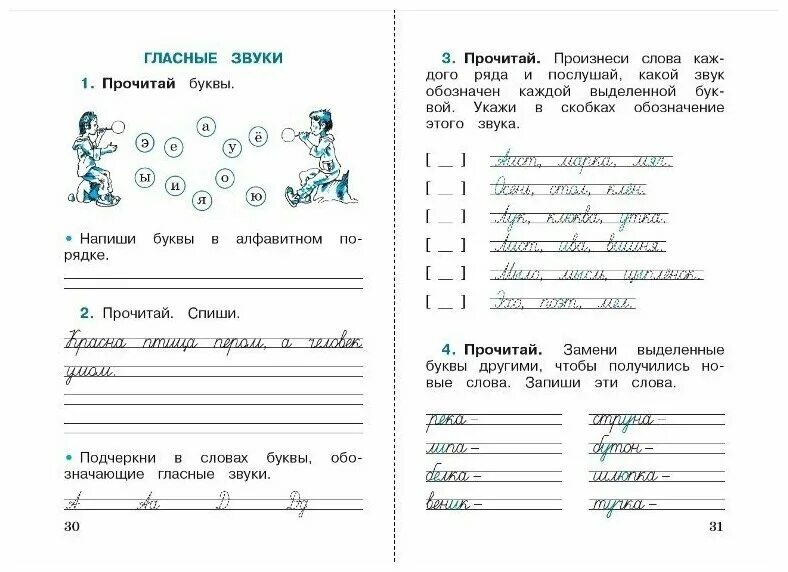 ГЛАСНЫЕ ЗВУКИ
1. Прочитай буквы.
э е а у ё
ы и я о ю
• Напиши буквы в алфавитном по-
рядке.
2. Прочитай. Спиши.
Красна птица пером, а человек
умом.
• Подчеркни в словах буквы, обо-
значающие гласные звуки.
А Аа Д Дд
30
3. Прочитай. Произнеси слова каж-
дого ряда и послушай, какой звук
обозначен каждой выделенной бук-
вой. Укажи в скобках обозначение
этого звука.
[ __ ] Аист, марка, мяч.
[ __ ] Осень, стол, клён.
[ __ ] Лук, клюква, утка.
[ __ ] Лист, ива, вишня.
[ __ ] Мыло, мысль, цыплёнок.
[ __ ] Эхо, поэт, мел.
4. Прочитай. Замени выделенные
буквы другими, чтобы получились но-
вые слова. Запиши эти слова.
река – струна –
липа – бутон –
белка – шлюпка –
веник – тучка –
31